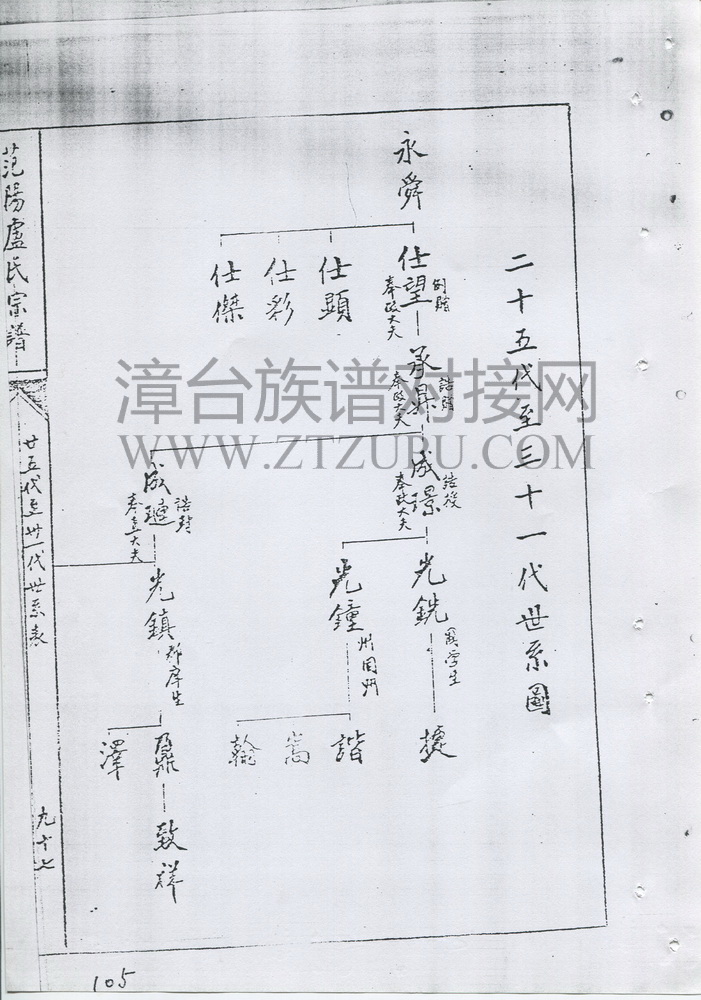 二十五代至三十一代世系圖
永舜
仕望
例贈
奉政大夫
仕顯
仕彩
仕傑
承
誥贈
奉政大夫
成璟
誥授
奉政大夫
成璉
誥贈
大夫
光銑
國學生
光鐘
州同
光鎮
郡庠生
捷
諧
嵩
翰
鼐
澤
致祥
范陽盧氏宗譜
廿五代至卅一代世系表
九十七
105
漳台族谱对接网
WWW.ZTZUPU.COM